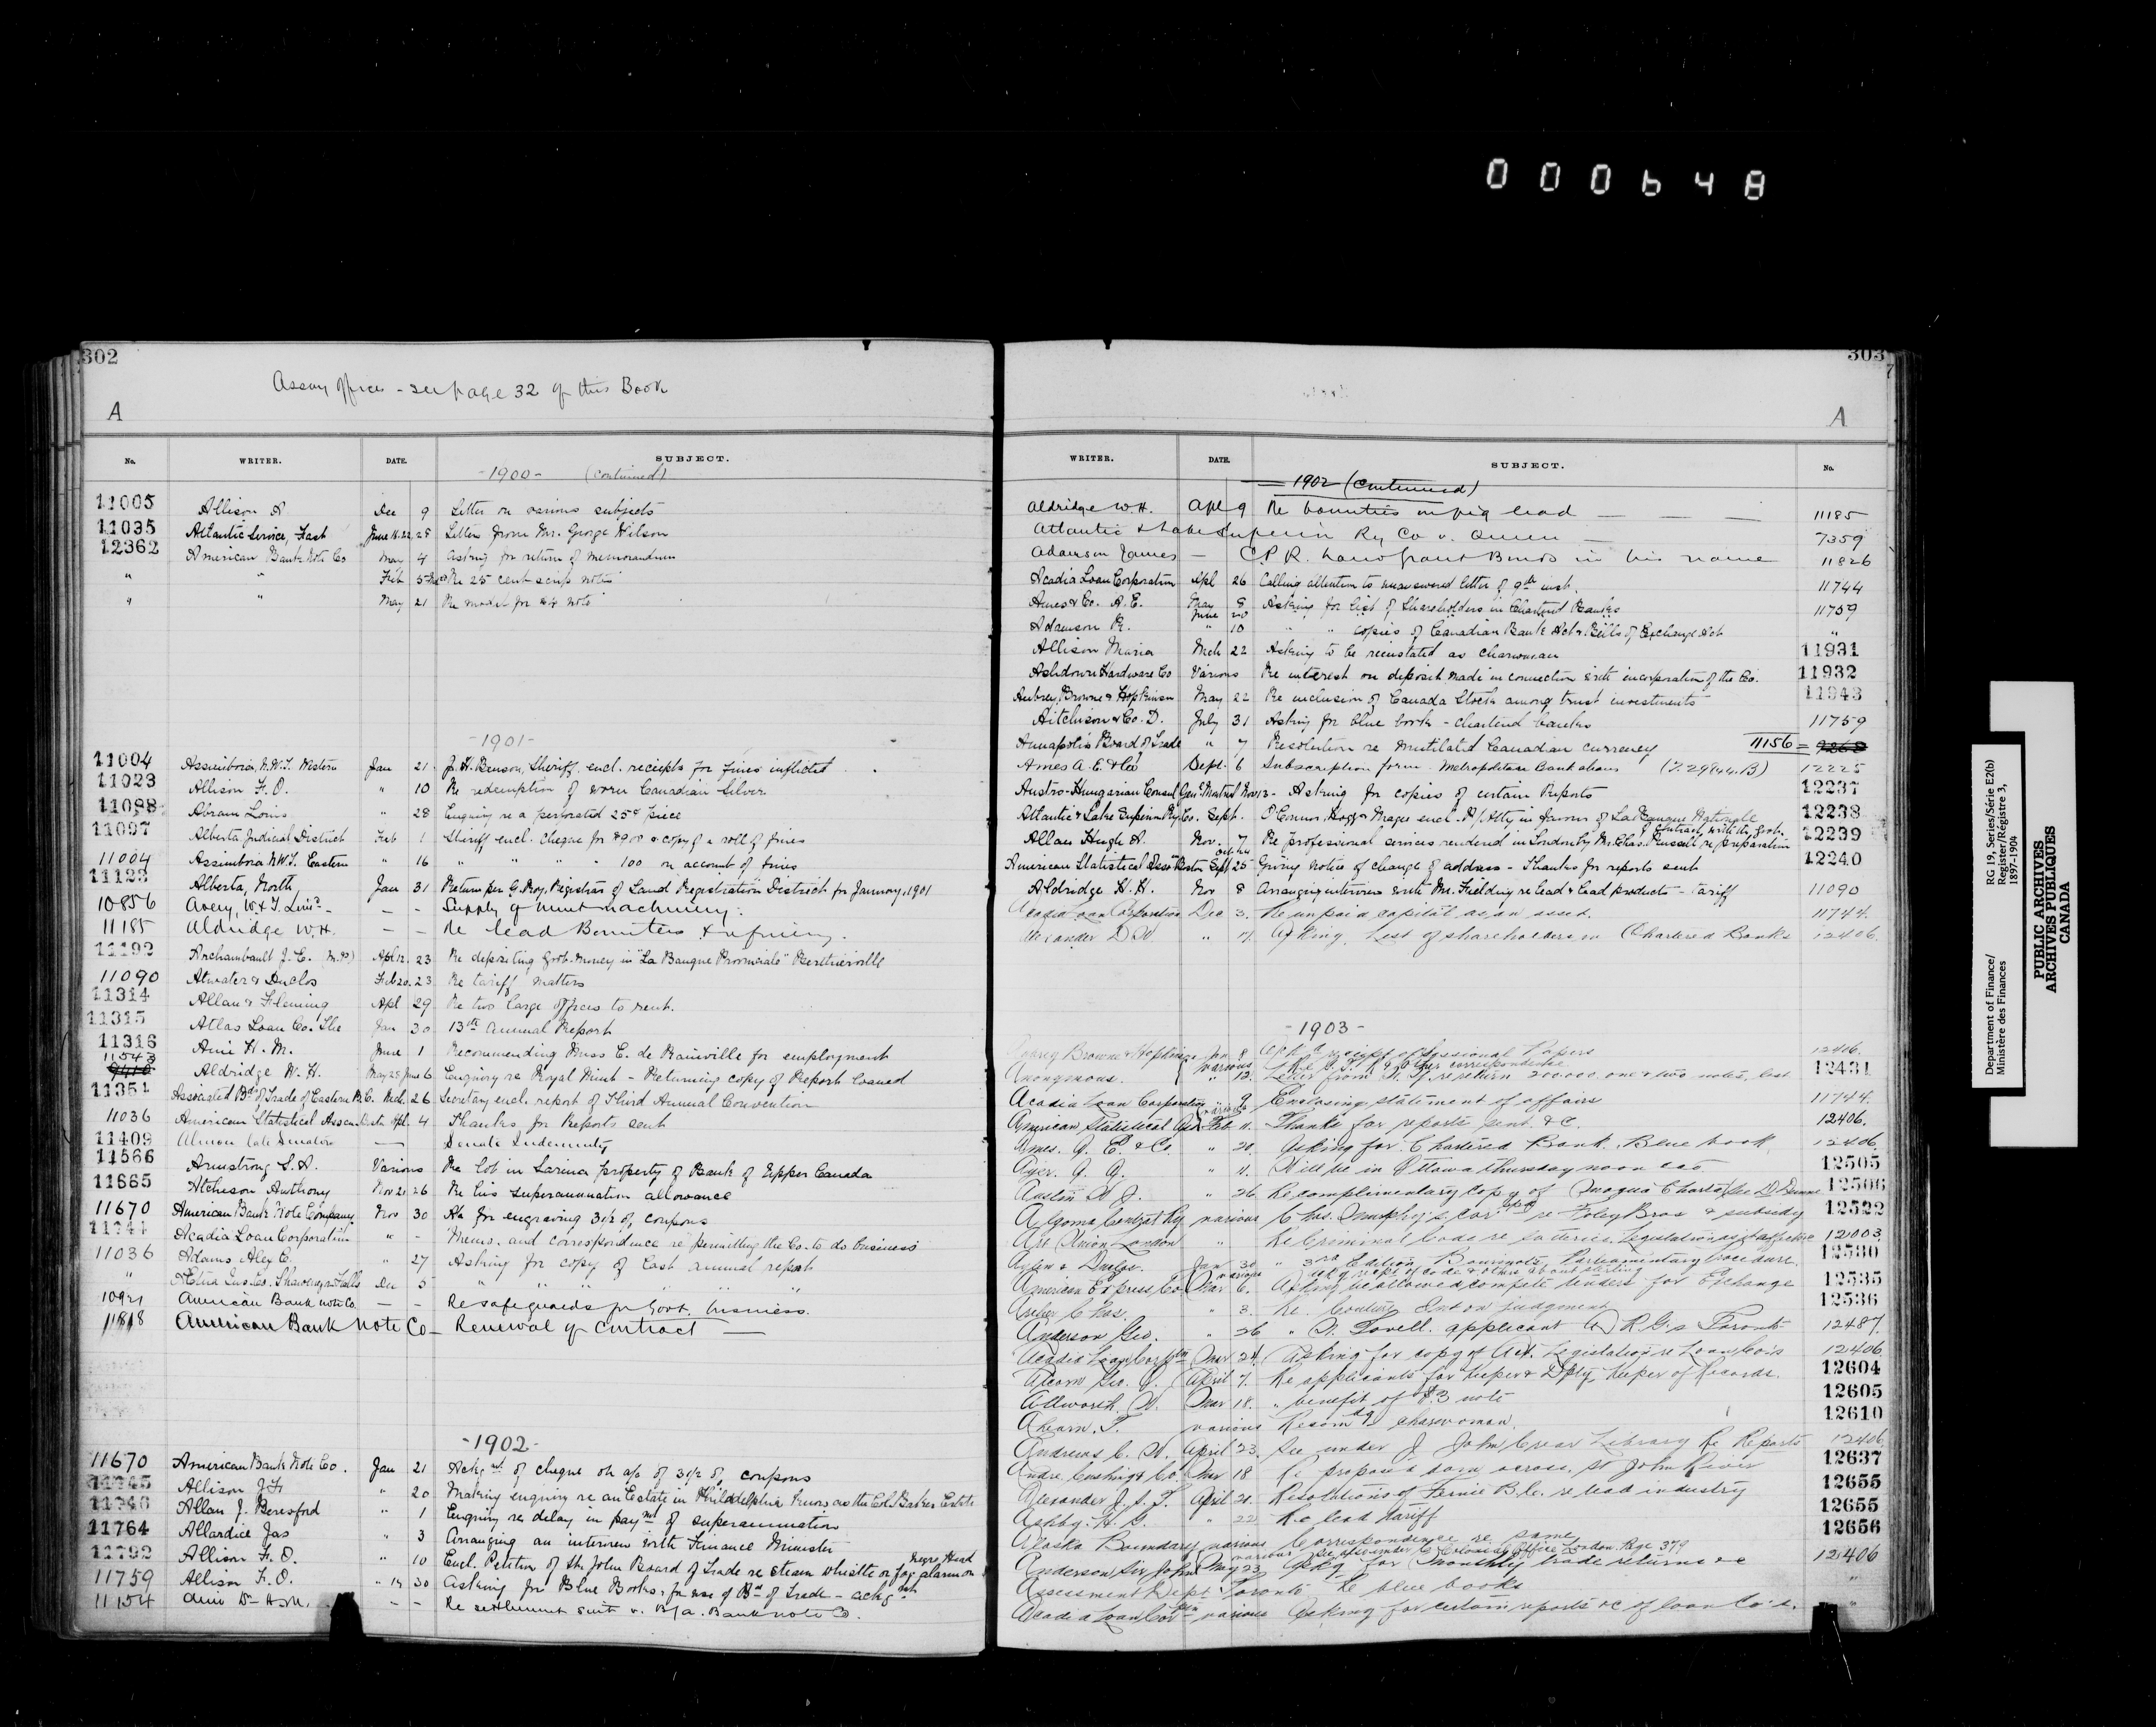 000648
302
Assay offices - see page 32 of this Book
A
No. WRITER. DATE. SUBJECT.
-1900- (continued)
11005 Allison A Dec 9 Letter on various subjects
11035 Atlantic Service, Fast June 18.22.28 Letter from Mr. George Wilson
12362 American Bank Note Co May 4 Asking for return of memorandum
" " Feb 5 Re 25 cent scrip notes
" " May 21 Re model for $4 note
-1901-
11004 Assiniboia, N.W.T. Western Jan 21 J. H. Benson, Sheriff encl. receipts for fines inflicted
11023 Allison F. O. " 10 Re redemption of worn Canadian Silver
11088 Abram Louis " 28 Enquiry re a perforated 25¢ piece
11097 Alberta Judicial District Feb 1 Sheriff encl. cheque for & copy of a roll of fines
11004 Assiniboia N.W.T. Eastern " 16 " " " " 100 on account of fines
11123 Alberta, North Jan 31 Return per G. Roy, Registrar of Land Registration District for January, 1901
10856 Avery, W. & T. Lim'd - - - Supply of mint machinery.
11185 Aldridge W.H. - - Re lead Bounties & refining.
11192 Archambault J. E. M.P. Apl 12. 23 Re depositing Govt. Money in "La Banque Provinciale" Berthierville
11090 Atwater & Duclos Feb 20. 23 Re tariff matters
11314 Allan & Fleming Apl 29 Re two large offices to rent.
11315 Atlas Loan Co. The Jan 30 13th annual Report
11316 Ami H. M. June 1 Recommending Miss E. de Rainville for employment
11543 Aldridge W. H. May 25 June 6 Enquiry re Royal Mint - Returning copy of Report loaned
11351 Associated Bds of Trade of Eastern B.C. Mch. 26 Secretary encl. report of Third Annual Convention
11036 American Statistical Assocn Boston Apl. 4 Thanks for Reports sent
11409 Almon late Senator — Senate Indemnity
11566 Armstrong S. A. Various Re lot in Sarnia property of Bank of Upper Canada
11665 Atcheson Anthony Nov 21. 26 Re his superannuation allowance
11670 American Bank Note Company Nov 30 A/c for engraving 3½% coupons
11744 Acadia Loan Corporation " - Memo. and correspondence re permitting the Co. to do business
11036 Adams Alex C. " 27 Asking for copy of last annual report
" Dec 5 " " " " "
10921 American Bank note Co. — — Re safeguards for Govt. business.
11818 American Bank Note Co — Renewal of contract —
-1902-
11670 American Bank Note Co. Jan 21 Ackgt of cheque on a/c of 3½% coupons
11745 Allison J. F. " 20 Making enquiry re an Estate in Philadelphia known as the Col. Barker Estate
11746 Allan J. Beresford " 1 Enquiry re delay in paymt of superannuation
11764 Allardice Jas " 3 Arranging an interview with Finance Minister
11792 Allison F. O. " 10 Encl. Petition of St. John Board of Trade re steam whistle or fog alarm on Negro Head
11759 Allison F. O. " 14 30 Asking for Blue Books for use of Bd of Trade - ackgt
11154 Ami Dr H.M. - - Re settlement suit v. B/A. Bank note Co.
303
7
A
WRITER. DATE. SUBJECT. No.
1902 (continued)
Aldridge W.H. Apl 9 Re bounties on pig lead — — — 11185
Atlantic & Lake Superior Ry Co v. Queen — 7359
Adamson James — C.P.R. Land grant Bonds in his name 11826
Acadia Loan Corporation Apl 26 Calling attention to unanswered letter of 9th inst. 11744
Ames & Co. A. E. May 8 June 20 Asking for list of Shareholders in Chartered Banks 11759
Adamson R. " 10 " " copies of Canadian Bank Act & Bills of Exchange Act "
Allison Maria Mch 22 Asking to be reinstated as charwoman 11931
Ashdown Hardware Co Various Re interest on deposit made in connection with incorporation of the Co. 11932
Aubrey, Browne & Hopkinson May 22 Re inclusion of Canada Stock among trust investments 11943
Aitchison & Co. D. July 31 Asking for blue book - chartered banks 11759
Annapolis Board of Trade " 7 Resolution re mutilated Canadian currency 11156
Ames A. E. & Co Sept. 6 Subscription form - Metropolitan Bank shares (T.29844.B) 12225
Austro-Hungarian Consul Genl Montreal Nov 13 - Asking for copies of certain Reports 12237
Atlantic & Lake Superior Ry Co. Sept. O'Connor, Hogg & Magee encl. P/Atty in favour of La Banque Nationale 12238
Allan Hugh A. Nov. 7 Oct 24 Re professional services rendered in London by Mr. Chas. Russell re preparation of contract with the Govt. 12239
American Statistical Assn Boston Sept 25 Giving notice of change of address - Thanks for reports sent 12240
Aldridge W. H. Nov 8 Arranging interview with Mr. Fielding re lead & lead products - tariff 11090
Acadia Loan Corporation Dec 3. Re unpaid capital as an asset. 11744.
Alexander D W " 17 Asking List of shareholders in Chartered Banks 12406.
-1903-
Aubrey Browne & Hopkinson Jan 8 Ack receipt of Sessional Papers 12406.
Anonymous. various " 12. re return 200.000. one & two notes, lost 12431
Acadia Loan Corporation " 9 Enclosing statement of affairs 11744.
American Statistical Assn Feb 11. Thanks for reports sent &c. 12406.
Ames. A. E. & Co. " 20. Asking for Chartered Bank Blue book 12406
Ayer. A. A. " 11. Will be in Ottawa thursday noon 12505
Austin W J. " 26 Re complimentary copy of Magna Charta 12506
Algoma Central Ry various Chas. Murphy's Cor. re Foley Bros & subsidy 12522
Art Union London " Re Criminal Code re Lotteries, Legislation 12003
Jan 30 " 3rd Edition Bourinots Parliamentary Procedure. 12530
American Express Co. Mar 6. Asking be allowed compete tenders for Exchange 12535
Archer Chas. " 3. Re judgment 12536
Anderson Geo. " 26 " Lovell. applicant R.G.s Toronto 12487.
Acadia Loan Corptn Mar 24. Asking for copy of Act. Legislation re Loan Co's 12406.
Alcorn Geo. O. April 7. Re applicants for Keeper & Dpty. Keeper of Records. 12604
Allworth. W. Mar 18. " benefit of $3 note 12605
Ahearn. T. various charwoman. 12610
Andrews C. W. April 23. See under J John Crerar Library Re Reports 12406
Andre Cushing & Co. Mar 18 Re proposed dam across St John River 12637
Alexander J. S. T. April 21. Resolutions of Fernie B.C. re lead industry 12655
Ashby. H. G. " 22 Re lead tariff 12655
Alaska Boundary various Correspondence re same 12656
See also under C Colonial Office London. Page 379
Anderson Sir John May 23 Askg for Monthly trade returns &c 12406
Assessment Dept Toronto Re blue books "
Acadia Loan Corptn various Asking for certain reports &c of loan Co's. "
Department of Finance/
Ministère des Finances
RG 19, Series/Série E2(b)
Register/Régistre 3,
1897-1904
PUBLIC ARCHIVES
ARCHIVES PUBLIQUES
CANADA